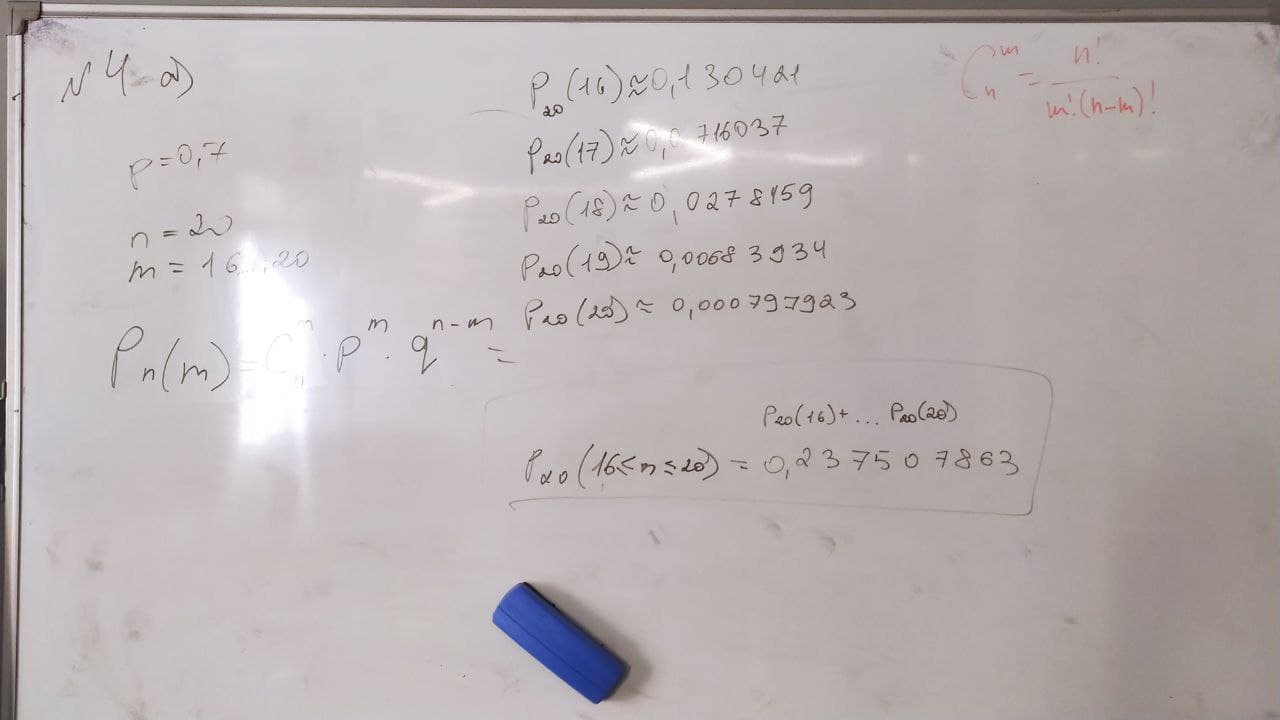 N 4 a)
p = 0,7
n = 20
m = 16...20
Pₙ(m) = Cₙᵐ · pᵐ · qⁿ⁻ᵐ =
P₂₀(16) ≈ 0,130421
P₂₀(17) ≈ 0,0716037
P₂₀(18) ≈ 0,0278459
P₂₀(19) ≈ 0,00683934
P₂₀(20) ≈ 0,000797923
P₂₀(16)+ ... P₂₀(20)
P₂₀(16 ≤ n ≤ 20) = 0,237507863
Cₙᵐ = n! / m!·(n-m)!